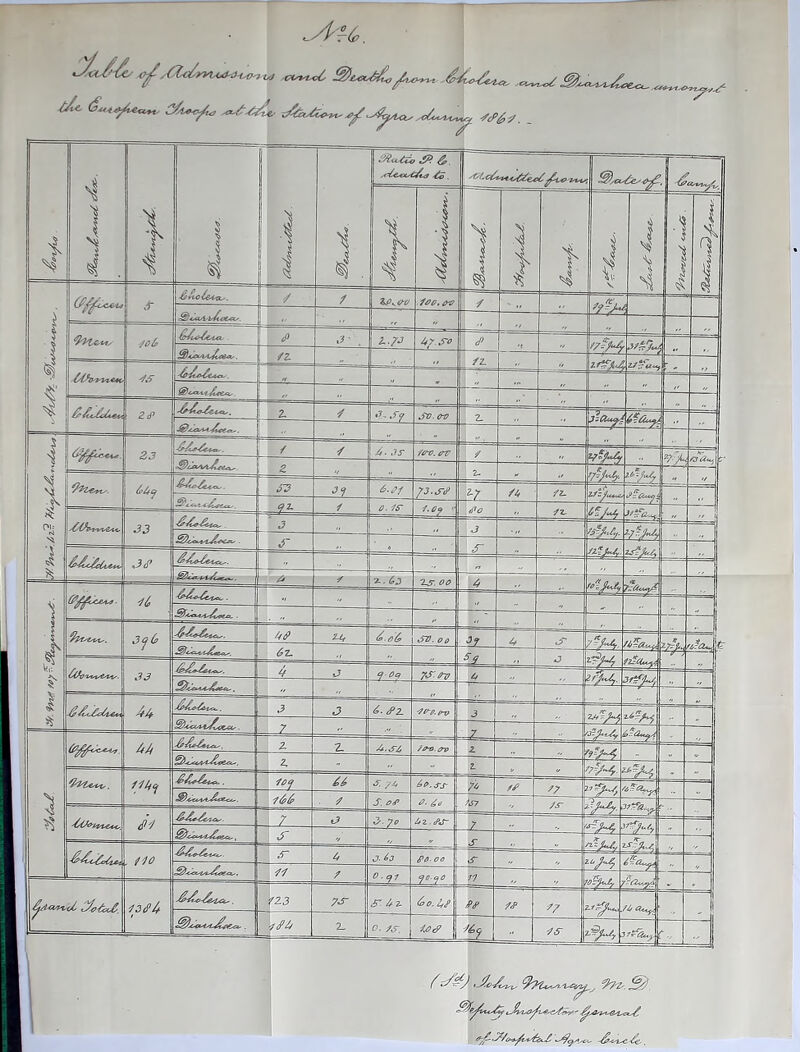 No. 6.
Table of Admissions and Deaths from Cholera and Diarrhœa amongst
the European Troops at the Station of Agra during 1861. -
Corps. | Rank and Sex. | Strength. | Diseases. | Admitted. | Deaths. | Ratio P. C. deaths to. | Admitted from. | Date of. | Camp.
Strength. | Admission. | Barrack. | Hospital. | Camp. | 1st Case. | Last Case. | Moved into. | Returned from.
Arty. Division.
Officers | 5 | Cholera. | 1 | 1 | 20.00 | 100.00 | 1 | " | " | 19th July
Diarrhœa. | " | " | " | " | " | " | "
Men | 106 | Cholera. | 8 | 3 | 2.73 | 47.50 | 8 | " | " | 17th July | 31st July | " | "
Diarrhœa. | 12 | " | " | " | 12 | " | " | 21st July | 21st Aug | " | "
Women | 15 | Cholera. | " | " | " | " | " | " | "
Diarrhœa. | " | " | " | " | " | " | "
Children | 28 | Cholera. | 2 | 1 | 3.59 | 50.00 | 2 | " | " | 3rd Augt | 6th Augt | " | "
Diarrhœa. | " | " | " | " | " | " | "
H. M's 42nd Highlanders.
Officers. | 23 | Cholera. | 1 | 1 | 4.35 | 100.00 | 1 | " | " | 27th July | " | 27th July | 13th Augt
Diarrhœa. | 2 | " | " | " | 2 | " | " | 17th July | 26th July | " | "
Men. | 649 | Cholera. | 53 | 39 | 6.01 | 73.58 | 27 | 14 | 12 | 21st June | 8th Augt | " | "
Diarrhœa. | 92 | 1 | 0.15 | 1.09 | 80 | " | 12 | 6th July | 31st Augt | " | "
Women | 33 | Cholera | 3 | " | " | " | 3 | " | " | 15th July. | 27th July | " | "
Diarrhœa | 5 | " | " | " | 5 | " | " | 12th July | 25th July | " | "
Children | 38 | Cholera. | " | " | " | " | " | " | "
Diarrhœa. | 4 | 1 | 2.63 | 25.00 | 4 | " | " | 10th July | 7th Augt
H. M's 107th Regiment.
Officers. | 16 | Cholera. | " | " | " | " | " | " | "
Diarrhœa. | " | " | " | " | " | " | "
Men. | 396 | Cholera. | 48 | 24 | 6.06 | 50.00 | 39 | 4 | 5 | 7th July | 16th Augt | 27th July | 16th Augt
Diarrhœa. | 62 | " | " | " | 59 | " | 3 | 2nd July | 12th Augt | " | "
Women. | 33 | Cholera. | 4 | 3 | 9.09 | 75.00 | 4 | " | " | 21st July. | 31st July | " | "
Diarrhœa. | " | " | " | " | " | " | "
Children | 44 | Cholera. | 3 | 3 | 6.82 | 100.00 | 3 | " | " | 24th July | 26th July | " | "
Diarrhœa. | 7 | " | " | " | 7 | " | " | 15th July | 6th Augt | " | "
Total
Officers. | 44 | Cholera. | 2 | 2 | 4.54 | 100.00 | 2 | " | " | 19th July | " | " | "
Diarrhœa. | 2 | " | " | " | 2 | " | " | 17th July | 26th July | " | "
Men. | 1149 | Cholera. | 109 | 66 | 5.74 | 60.55 | 74 | 18 | 17 | 21st July | 16th Augt | " | "
Diarrhœa. | 166 | 1 | 5.08 | 0.60 | 151 | " | 15 | 2nd July | 31st Augt | " | "
Women. | 81 | Cholera | 7 | 3 | 3.70 | 42.85 | 7 | " | " | 15th July | 31st July | " | "
Diarrhœa. | 5 | " | " | " | 5 | " | " | 12th July | 25th July | " | "
Children | 110 | Cholera. | 5 | 4 | 3.63 | 80.00 | 5 | " | " | 24 July | 6th Augt | " | "
Diarrhœa. | 11 | 1 | 0.91 | 90.90 | 11 | " | " | 10th July | 7th Augt | " | "
Grand Total. | 1,384 | Cholera. | 123 | 75 | 5.42 | 60.48 | 88 | 18 | 17 | 21st June | 16 Augt | " | "
Diarrhœa. | 184 | 2 | 0.15 | 1.08 | 169 | " | 15 | 2nd July | 31st Augt | " | "
(Sd) John Murray, M. D.
Deputy Inspector General
of Hospital Agra Circle.